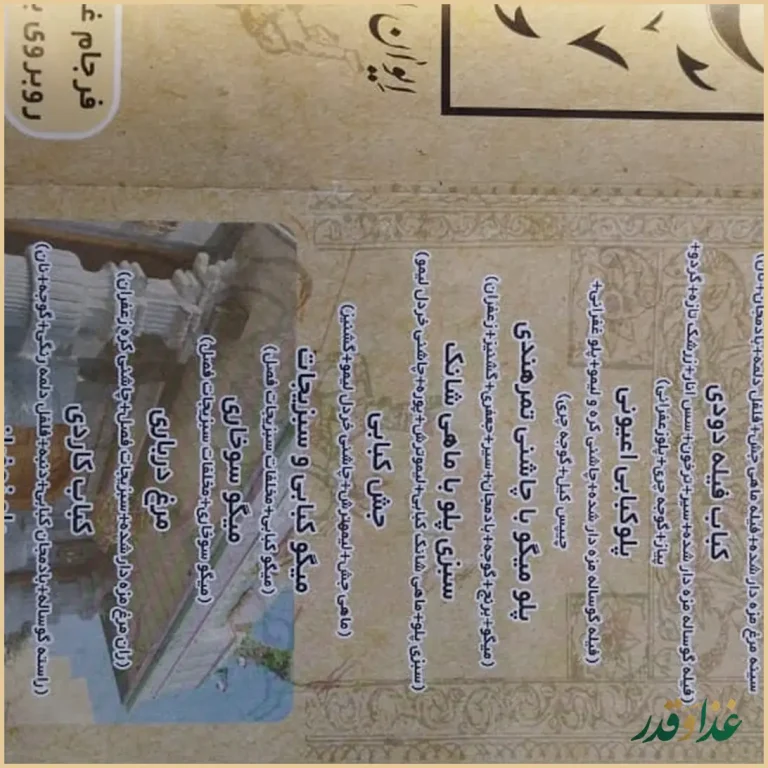 سینه مرغ مزه دار شده+فیله ماهی جش+فلفل دلمه+بادمجان+نان)
کباب فیله دودی
(فیله گوساله مزه دار شده+سیر+ترخون+سس انار+زرشک تازه+گردو+
پیاز+گوجه چری+پلوزعفرانی)
پلوکبابی اعیونی
(فیله گوساله مزه دار شده+چاشنی کره و لیمو+پلو زعفرانی+
چیپس کیل+گوجه چری)
پلو میگو با چاشنی تمرهندی
(میگو+برنج+گوجه+بادمجان+سیر+جعفری+گشنیز+زعفران)
سبزی پلو با ماهی شانک
(سبزی پلو+ماهی شانک کبابی+لیموترش+پوره+چاشنی خردل لیمو)
جش کبابی
(ماهی جش+لیموترش+چاشنی خردل لیمو+گشنیز)
میگو کبابی و سبزیجات
(میگو کبابی+مخلفات سبزیجات فصل)
میگو سوخاری
(میگو سوخاری+مخلفات سبزیجات فصل)
مرغ درباری
(ران مرغ مزه دار شده+سبزیجات فصل+چاشنی کره زعفران)
کباب کاردی
(راسته گوساله+بادمجان کبابی+دنبه+فلفل دلمه رنگی+گوجه+نان)
ایوان
فرجام
روبروی
غذا و قدر